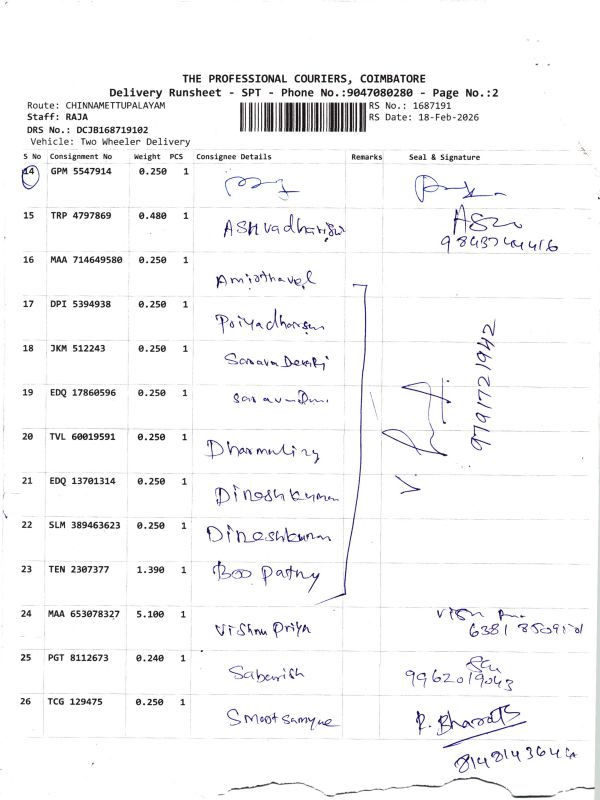 THE PROFESSIONAL COURIERS, COIMBATORE
Delivery Runsheet - SPT - Phone No.:9047080280 - Page No.:2
Route: CHINNAMETTUPALAYAM
Staff: RAJA
DRS No.: DCJB168719102
Vehicle: Two Wheeler Delivery
RS No.: 1687191
RS Date: 18-Feb-2026
S No Consignment No Weight PCS Consignee Details Remarks Seal & Signature
14 GPM 5547914 0.250 1
15 TRP 4797869 0.480 1 9843744416
16 MAA 714649580 0.250 1 Amirthavel
17 DPI 5394938 0.250 1
18 JKM 512243 0.250 1
19 EDQ 17860596 0.250 1
9791721942
20 TVL 60019591 0.250 1
21 EDQ 13701314 0.250 1 Dineshkumar
22 SLM 389463623 0.250 1 Dineshkumar
23 TEN 2307377 1.390 1 Boo Pathy
24 MAA 653078327 5.100 1 Vishnu Priya
25 PGT 8112673 0.240 1 Sabarish 9962019043
26 TCG 129475 0.250 1 R. Bharath